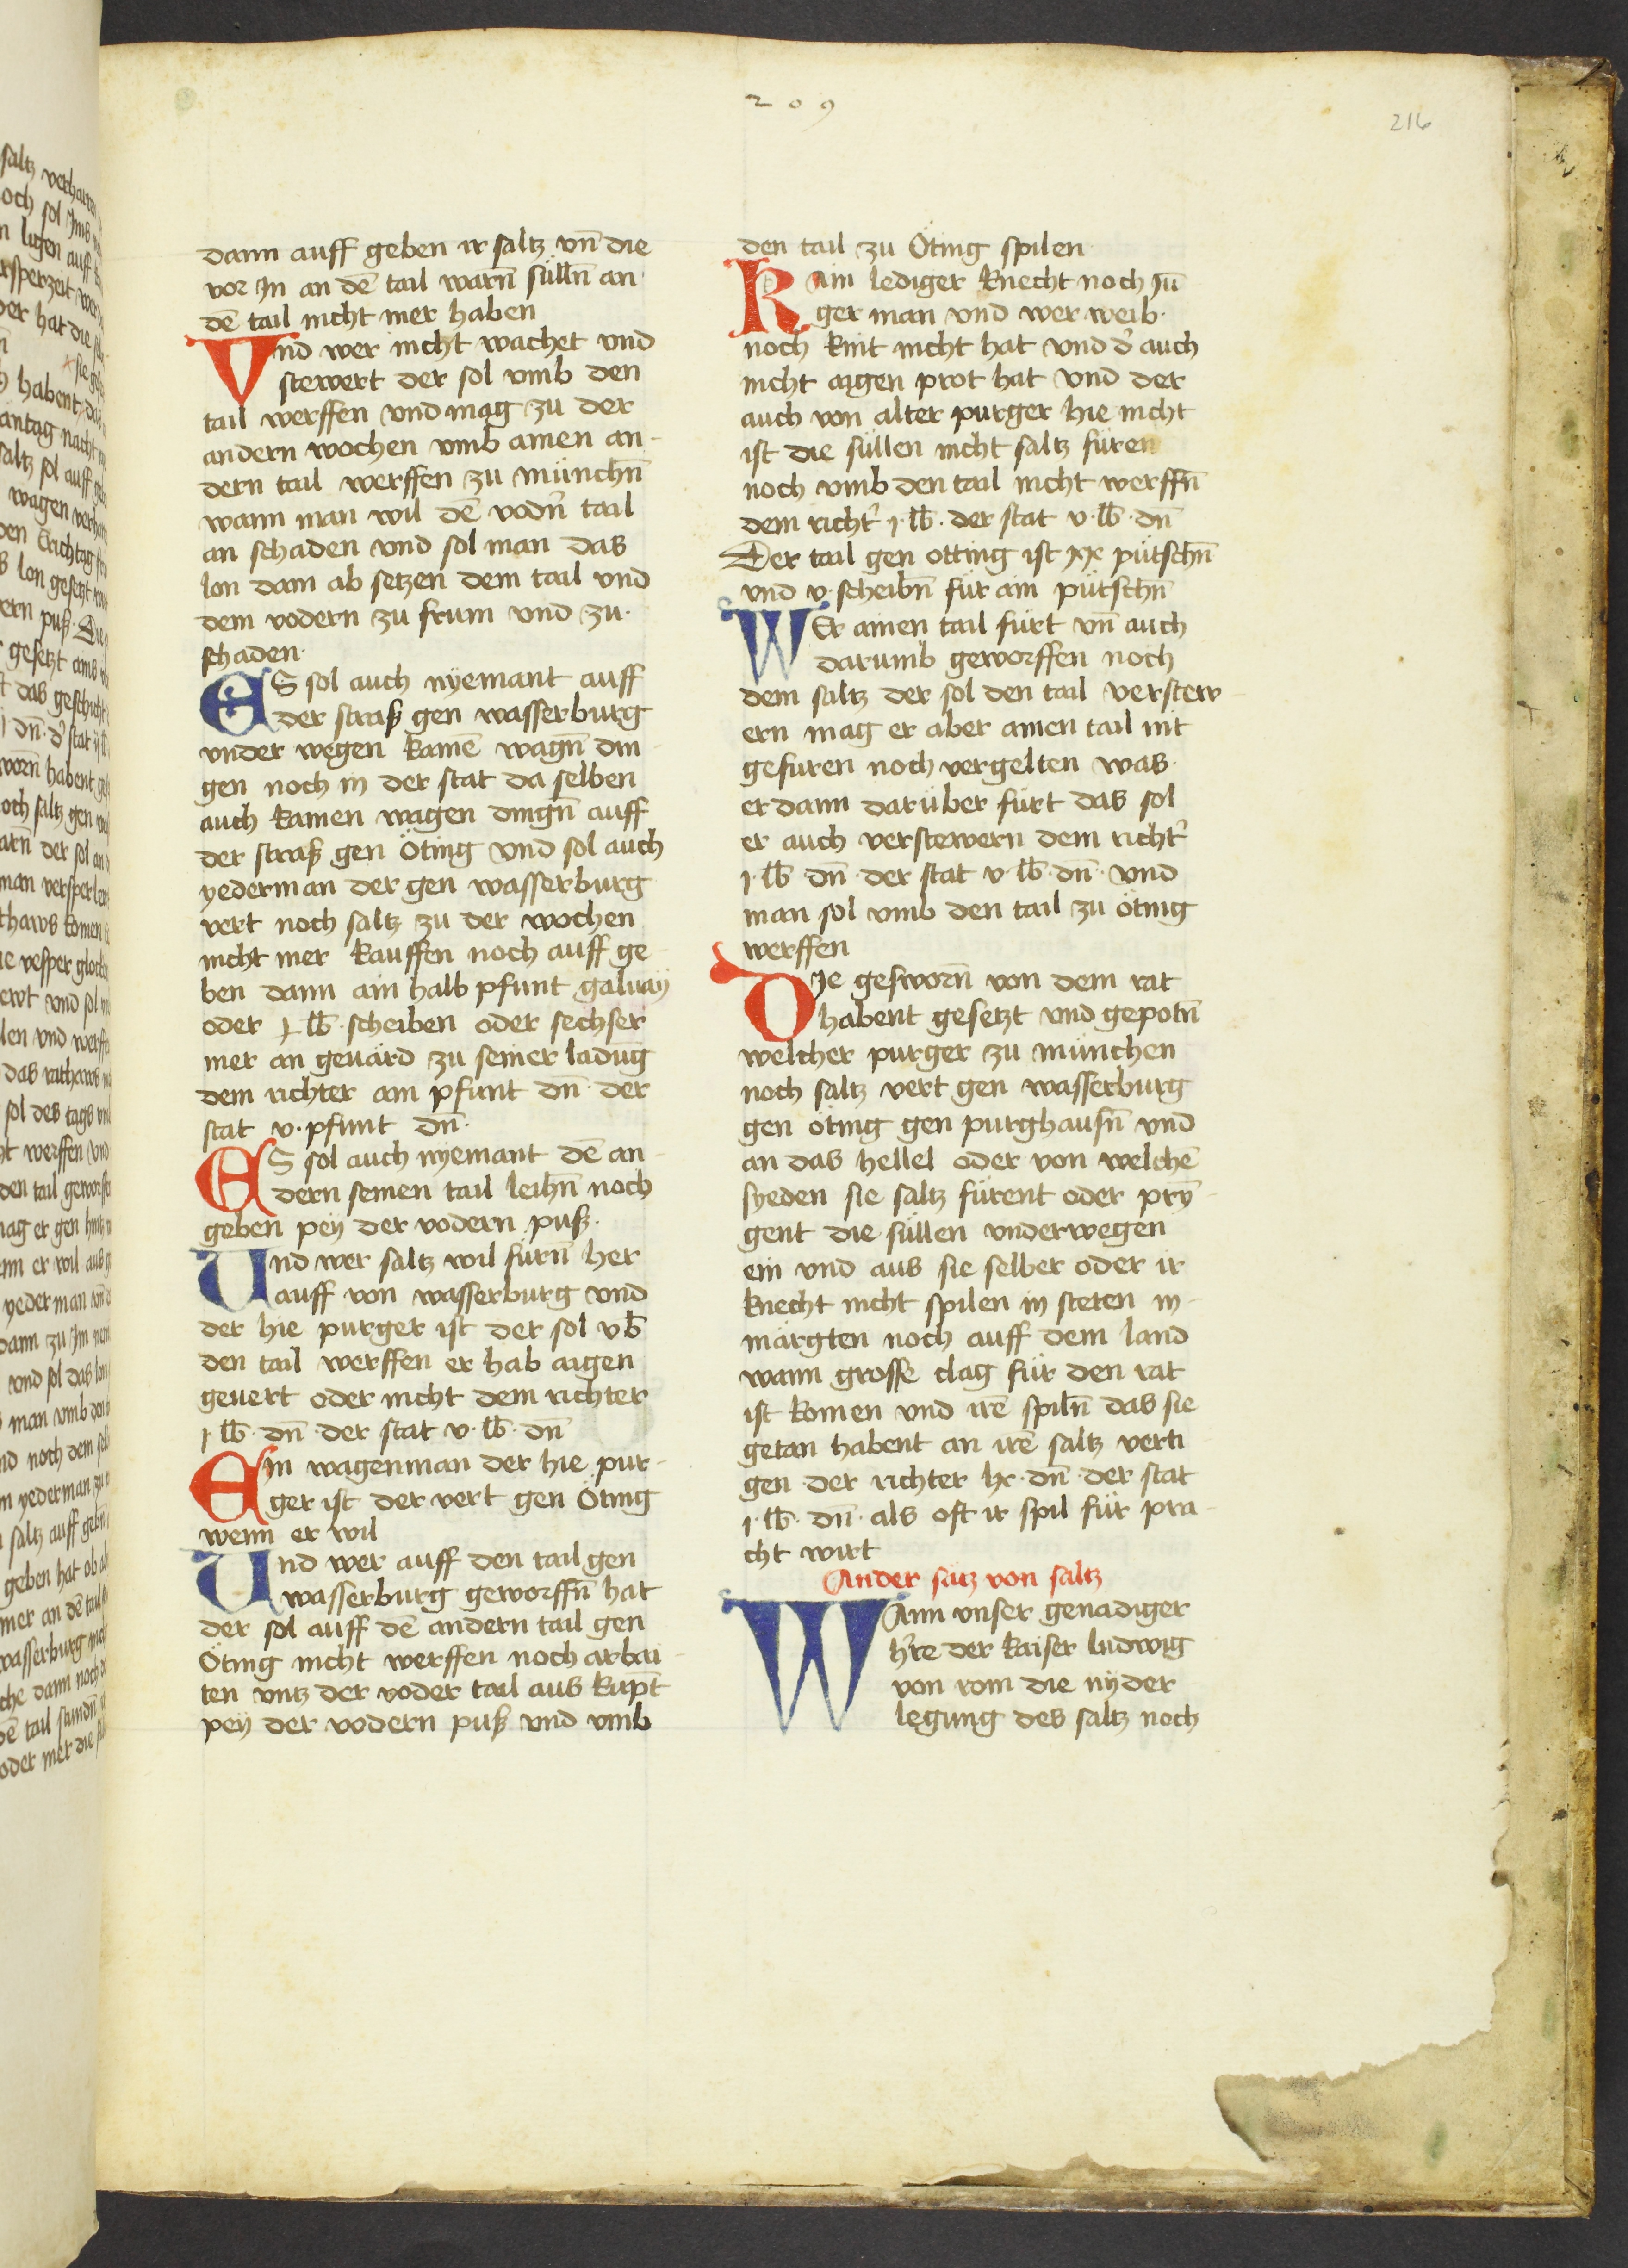 209
216
dann auff geben ir saltz vn̄ die
vor In an dē tail warn̄ sülln̄ an
dē tail nicht mer haben
Vnd wer nicht wachet vnd
stewert der sol vmb den
tail werffen vnd mag zu der
andern wochen vmb ainen an-
dern tail werffen zu münchn̄
wann man wil dē vodn̄ tail
an schaden vnd sol man das
lon dann ab setzen dem tail vnd
dem vodern zu frum vnd zu
schaden
ES sol auch nyemant auff
der straß gen wasserburg
vnder wegen kainē wagn̄ din-
gen noch in der stat da selben
auch kainen wagen dingn̄ auff
der straß gen Öting vnd sol auch
yederman der gen wasserburg
vert noch saltz zu der wochen
nicht mer kauffen noch auff ge-
ben dann ain halb pfunt galuaÿ
oder j lb̄ scheiben oder sechser
mer an geuärd zu seiner ladūg
dem richter ain pfunt dn̄ der
stat v pfunt dn̄
ES sol auch nyemant dē an-
dern seinen tail leihn̄ noch
geben peÿ der vodern puß
Vnd wer saltz wil fürn̄ her
auff von wasserburg vnd
der hie purger ist der sol vb̄
den tail werffen er hab aigen
geuert oder nicht dem richter
j lb̄ dn̄ der stat v lb̄ dn̄
Ein wagenman der hie pur-
ger ist der vert gen Öting
wenn er wil
Vnd wer auff den tail gen
wasserburg geworffn̄ hat
der sol auff dē andern tail gen
Öting nicht werffen noch arbai-
ten vntz der voder tail aus kūpt
peÿ der vodern puß vnd vmb
den tail zu Öting spilen
Kain lediger knecht noch Jū
ger man vnd wer weib
noch kint nicht hat vnd d' auch
nicht aigen prot hat vnd der
auch von alter purger hie nicht
ist die süllen nicht saltz füren
noch vmb den tail nicht werffn̄
dem richt' j lb̄ der stat v lb̄ dn̄
Der tail gen otting ist xx pütschn̄
vnd v scheibn̄ für ain pütschn̄
WEr ainen tail fürt vn̄ auch
darumb geworffen noch
dem saltz der sol den tail verstew-
ern mag er aber ainen tail nit
gefüren noch vergelten was
er dann darüber fürt das sol
er auch verstewern dem richt'
j lb̄ dn̄ der stat v lb̄ dn̄ vnd
man sol vmb den tail zu öting
werffen
DIe gesworn̄ von dem rat
habent gesetzt vnd gepotn̄
welcher purger zu münchen
noch saltz vert gen wasserburg
gen öting gen purghausn̄ vnd
an das hellel oder von welchē
syeden sie saltz fürent oder prȳ-
gent die süllen vnderwegen
ein vnd aus sie selber oder ir
knecht nicht spilen in steten in
märgten noch auff dem land
wann grosse clag für den rat
ist komen vnd irē spiln̄ das sie
getan habent an irē saltz verti-
gen der richter lx dn̄ der stat
j lb̄ dn̄ als oft ir spil für pra-
cht wirt
Ander sätz von saltz
WAnn vnser genadiger
h're der kaiser ludwig
von rom die nÿder
legung des saltz noch